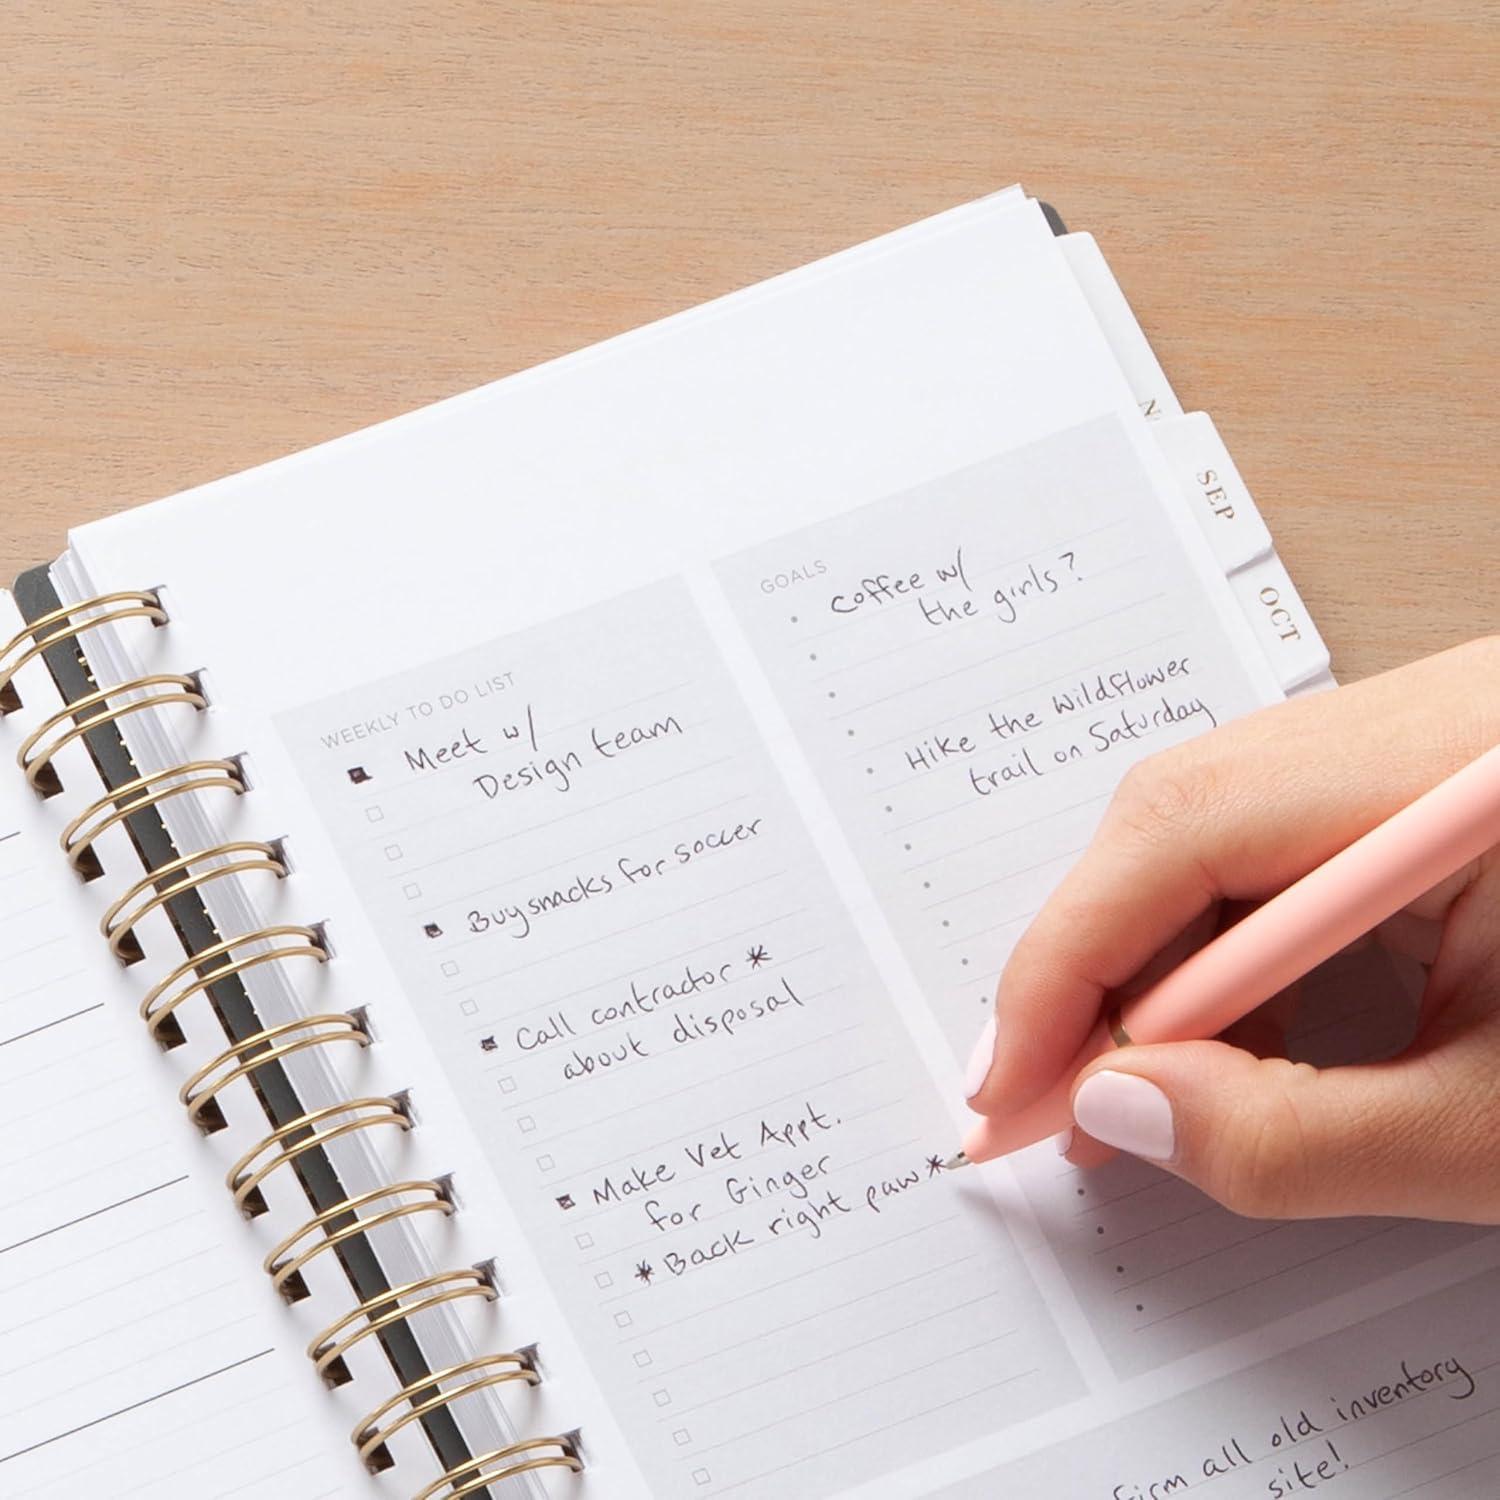 WEEKLY TO DO LIST
Meet w/
Design team
Buy snacks for soccer
Call contractor *
about disposal
Make Vet Appt.
for Ginger
* Back right paw *
GOALS
coffee w/
the girls?
Hike the Wildflower
trail on Saturday
all old inventory
site!
N
SEP
OCT